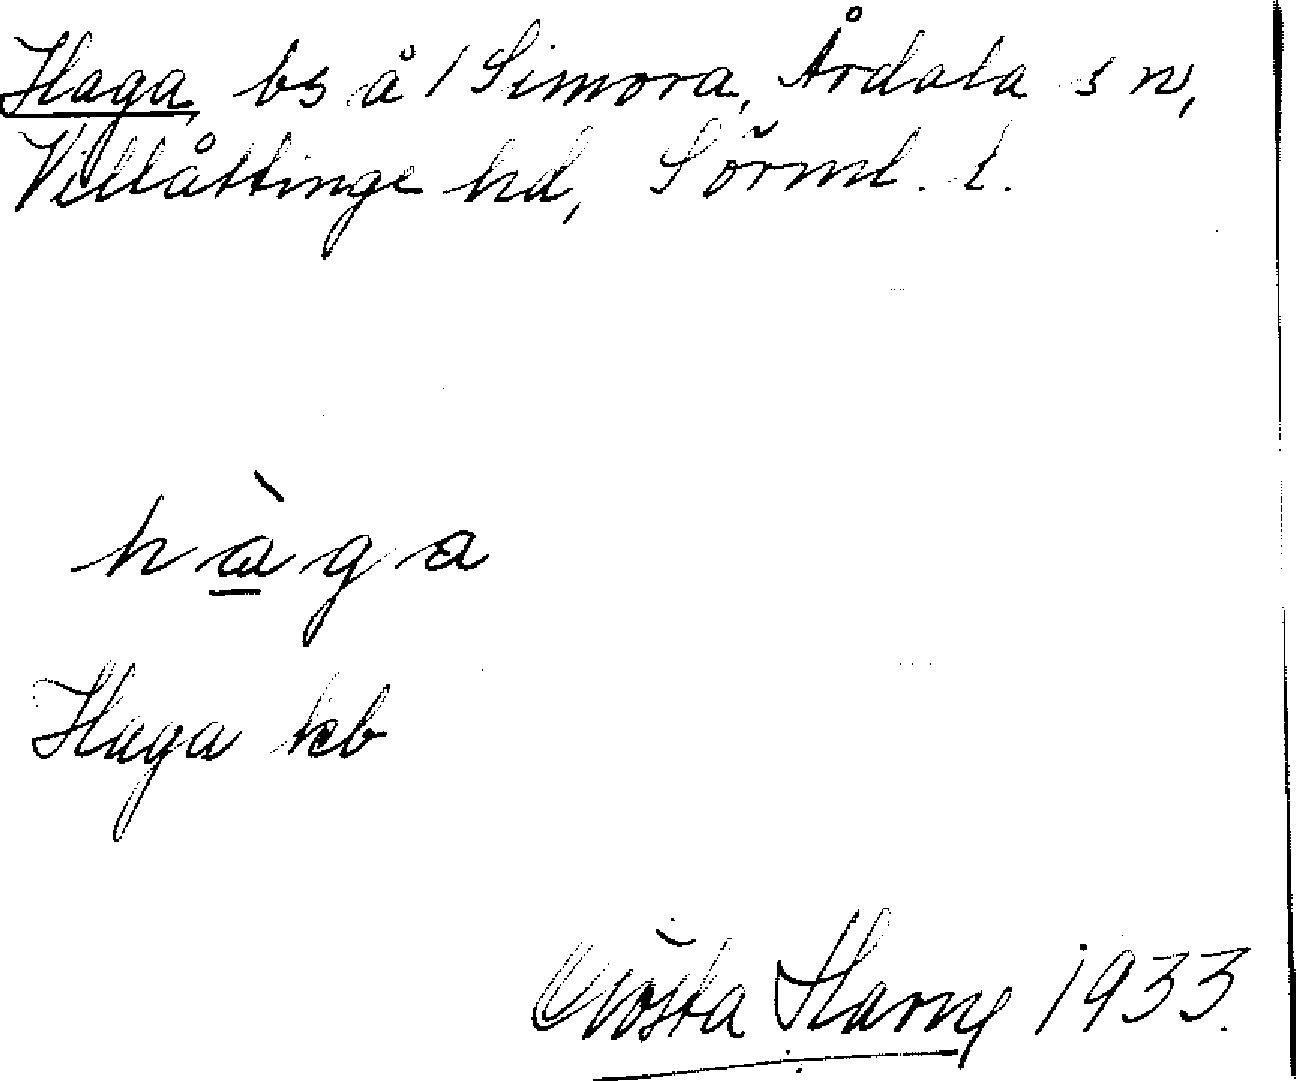 Haga bs å /Simora, Årdala sn,
Villåttinge hd, Sörml. l.
hàga
Haga kb
Gösta Harng 1933.